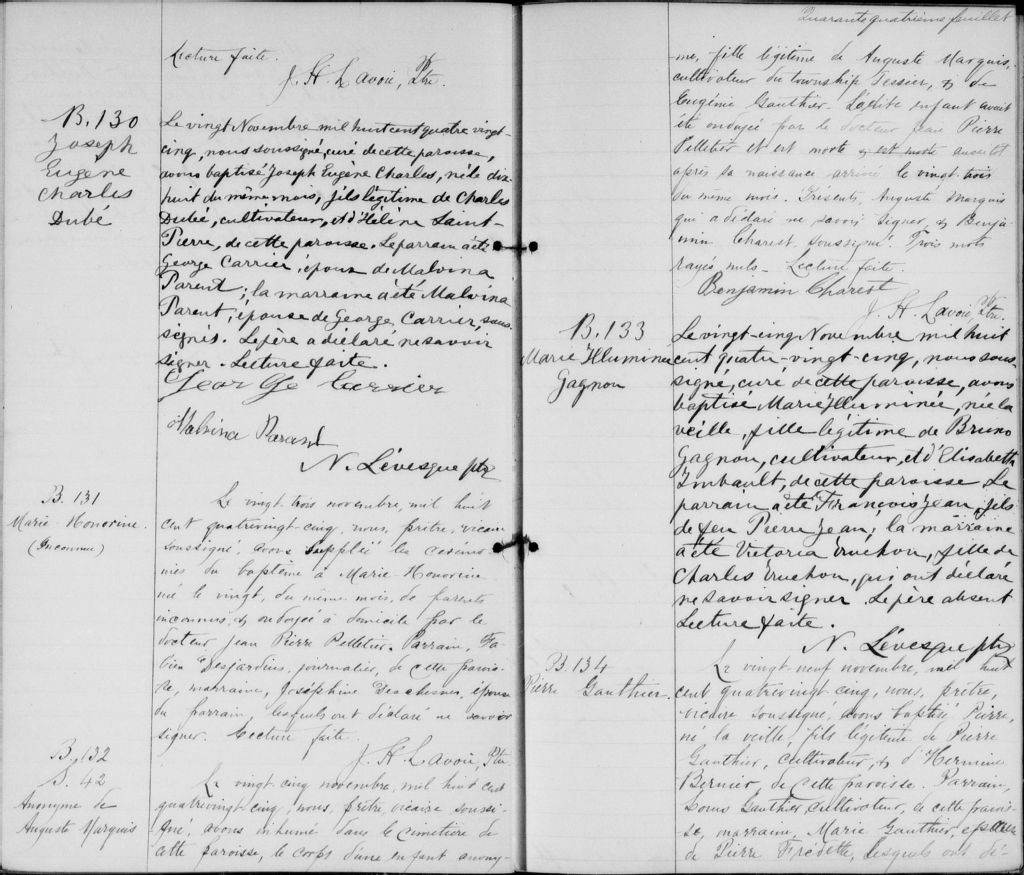 Lecture faite.
J. H. Lavoie, Ptre.
B. 130
Joseph
Eugène
Charles
Dubé
Le vingt Novembre mil huit cent quatre vingt-
cinq, nous soussigné, curé de cette paroisse,
avons baptisé Joseph Eugène Charles, né le dix
huit du même mois, fils légitime de Charles
Dubé, cultivateur, et d'Hélène Saint-
Pierre, de cette paroisse. Le parrain a été
George Carrier, époux de Malvina
Parent; la marraine a été Malvina
Parent, épouse de George Carrier, sous-
signés. Le père a déclaré ne savoir
signer. Lecture faite.
George Carrier
Malvina Parant
N. Lévesque ptr
B. 131
Marie Honorine.
(Inconnue)
Le vingt trois novembre, mil huit
cent quatrevingt cinq, nous, prêtre, vicaire
soussigné, avons supplié les cérémo-
nies du baptême à Marie-Honorine
né le vingt, du même mois, de parents
inconnus, & ondoyée à domicile par le
docteur Jean Pierre Pelletier. Parrain, Fa-
bien Desjardins, journalier, de cette parois-
se, marraine, Joséphine Deschesnes, épouse
du parrain, lesquels ont déclaré ne savoir
signer. Lecture faite.
J. H. Lavoie, Ptre
B. 132
S. 42
Anonyme de
Auguste Marquis
Le vingt cinq novembre, mil huit cent
quatrevingt cinq, nous, prêtre, vicaire soussi-
gné, avons inhumé dans le cimetière de
cette paroisse, le corps d'une enfant anony-
Quarante quatrième feuillet
me, fille légitime de Auguste Marquis,
cultivateur du township Tessier, & de
Eugénie Gauthier. Ladite enfant avait
été ondoyée par le docteur Jean Pierre
Pelletier et est morte & est morte aussitôt
après sa naissance arrivée le vingt-trois
du même mois. Présents, Auguste Marquis
qui a déclaré ne savoir signer, & Benja-
min Charest, soussigné. Trois mots
rayés nuls. Lecture faite.
Benjamin Charest
J. H. Lavoie, Ptre.
B. 133
Marie Illuminée
Gagnon
Le vingt-cinq Novembre mil huit
cent quatre-vingt-cinq, nous sous-
signé, curé de cette paroisse, avons
baptisé Marie Illuminée, née la
veille, fille légitime de Bruno
Gagnon, cultivateur, et d'Elisabeth
Imbault, de cette paroisse. Le
parrain a été François Jean, fils
de feu Pierre Jean; la marraine
a été Victoria Truchon, fille de
Charles Truchon, qui ont déclaré
ne savoir signer. Le père absent
Lecture faite.
N. Lévesque ptr
B. 134
Pierre Gauthier.
Le vingt-neuf novembre, mil huit
cent quatrevingt cinq, nous, prêtre,
vicaire soussigné, avons baptisé Pierre,
né la veille, fils légitime de Pierre
Gauthier, cultivateur, & d'Hermine
Bernier, de cette paroisse. Parrain,
Louis Gauthier, cultivateur, de cette parois-
se, marraine, Marie Gauthier, épouse
de Pierre Fredette, lesquels ont dé-